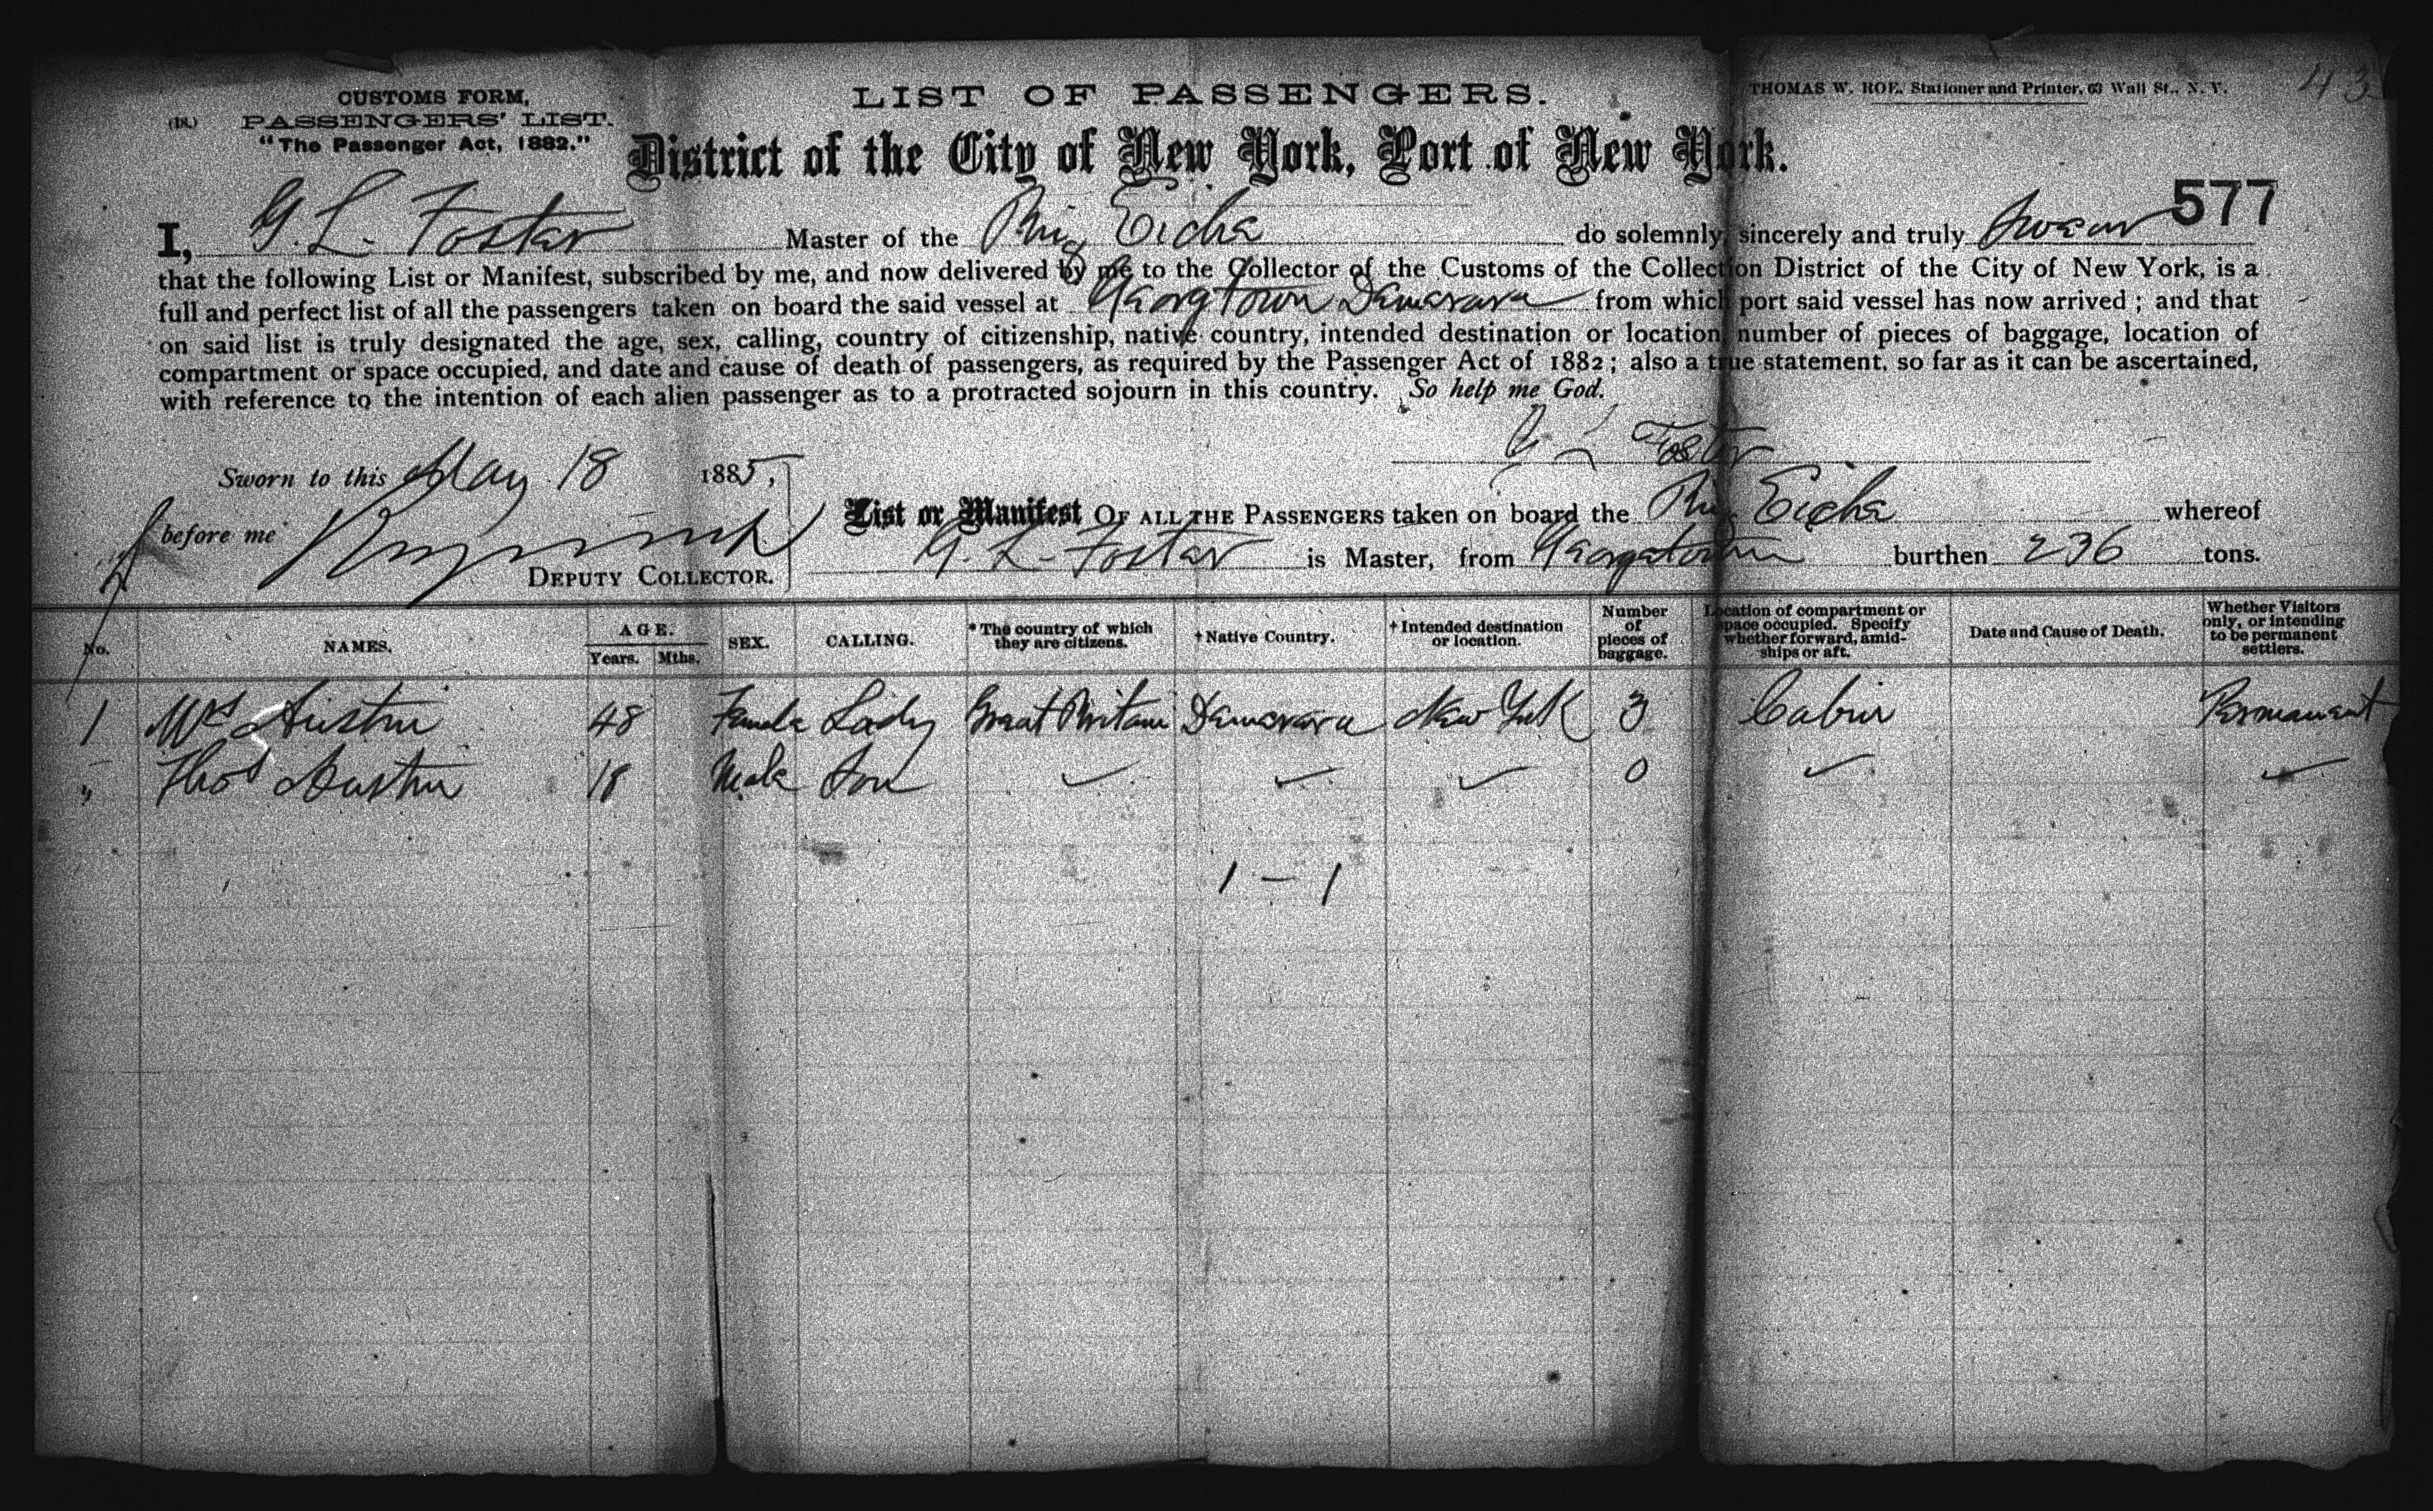 CUSTOMS FORM,
(18.) PASSENGERS' LIST.
"The Passenger Act, 1882."
LIST OF PASSENGERS.
THOMAS W. ROE, Stationer and Printer, 63 Wall St., N. Y.
43
District of the City of New York, Port of New York.
577
I, G. L. Foster Master of the Brig Eicha do solemnly, sincerely and truly Swear
that the following List or Manifest, subscribed by me, and now delivered by me to the Collector of the Customs of the Collection District of the City of New York, is a
full and perfect list of all the passengers taken on board the said vessel at Georgtown Demerara from which port said vessel has now arrived; and that
on said list is truly designated the age, sex, calling, country of citizenship, native country, intended destination or location number of pieces of baggage, location of
compartment or space occupied, and date and cause of death of passengers, as required by the Passenger Act of 1882; also a true statement, so far as it can be ascertained,
with reference to the intention of each alien passenger as to a protracted sojourn in this country. So help me God.
G L Foster
Sworn to this May 18 1885,
before me
DEPUTY COLLECTOR.
List or Manifest OF ALL THE PASSENGERS taken on board the Brig Eicha whereof
G. L. Foster is Master, from Georgetown burthen 236 tons.
No. NAMES. AGE. Years. Mths. SEX. CALLING. *The country of which they are citizens. †Native Country. †Intended destination or location. Number of pieces of baggage. Location of compartment or space occupied. Specify whether forward, amidships or aft. Date and Cause of Death. Whether Visitors only, or intending to be permanent settlers.
1 Mrs Austin 48 Female Lady Great Britain Demerara New York 3 Cabin Permanent
" Thos Austin 18 Male Son ✓ ✓ ✓ 0 ✓ ✓
1 – 1